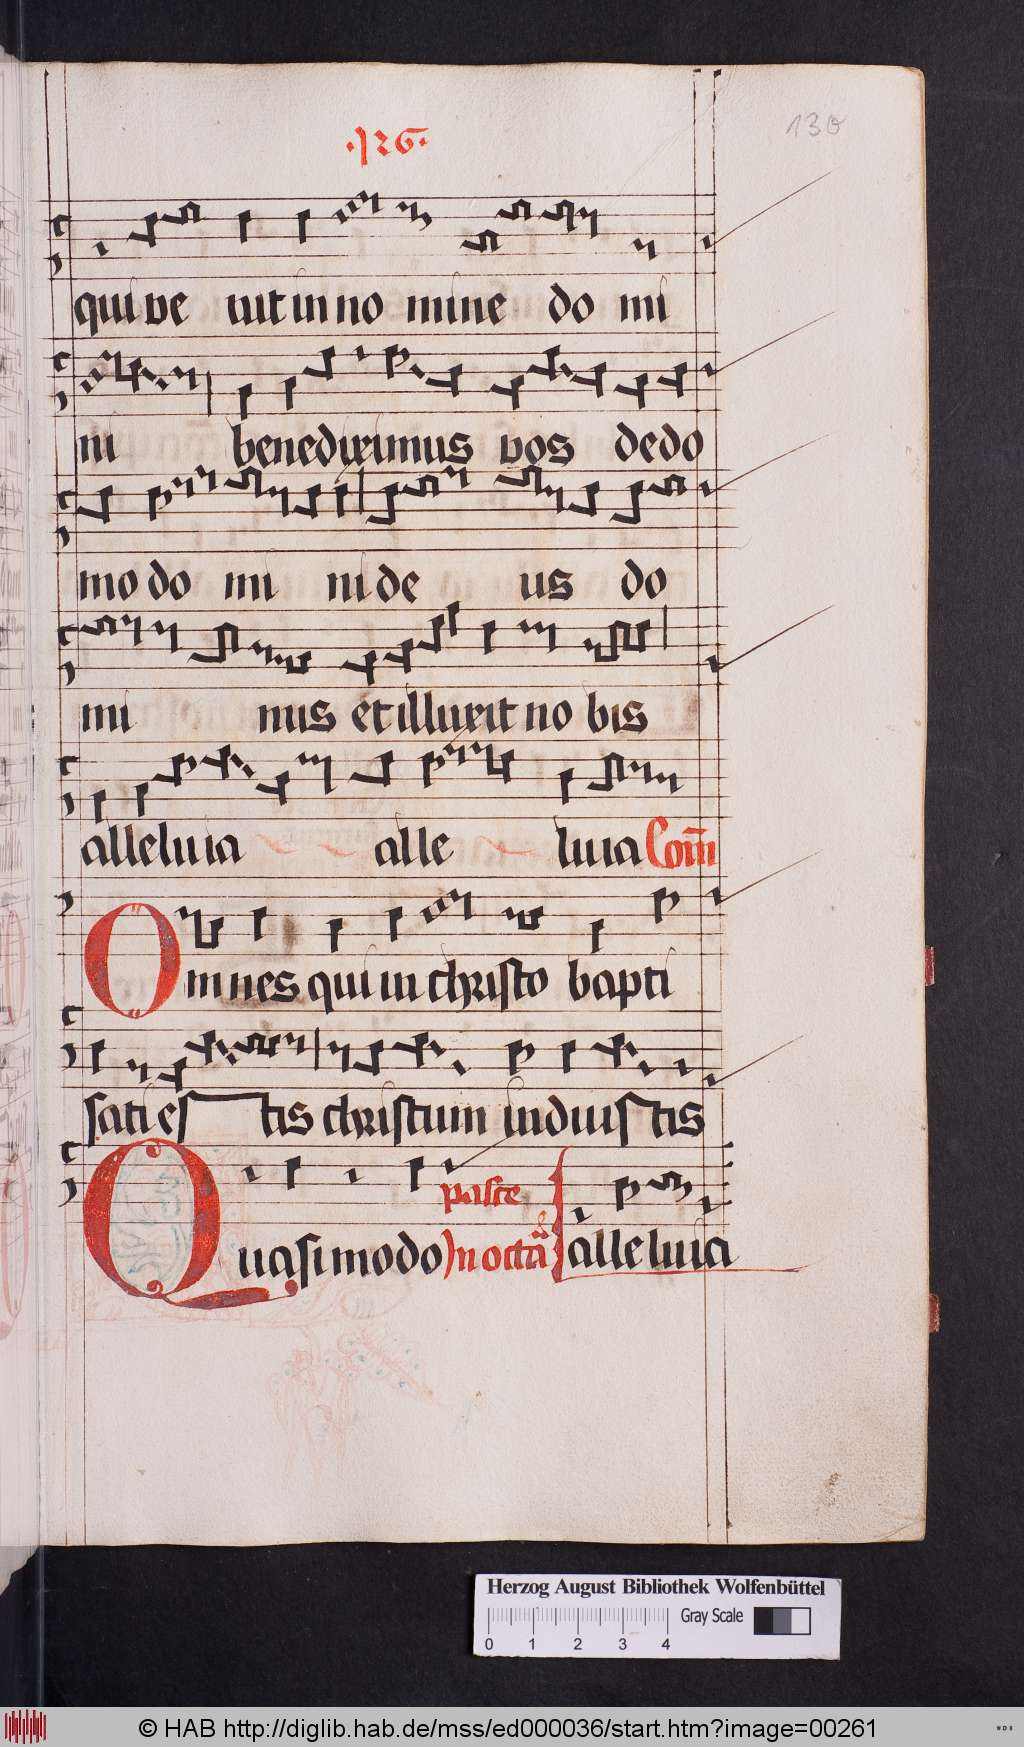 ·126·
130
qui ve nit in no mine do mi
ni benediximus vos dedo
mo do mi ni de us do
mi nus et illuxit no bis
alleluia alle luia Com̄
Omnes qui in christo bapti
sati estis christum induistis
pasce
Quasimodo In octa alleluia
Herzog August Bibliothek Wolfenbüttel
Gray Scale
0 1 2 3 4
© HAB http://diglib.hab.de/mss/ed000036/start.htm?image=00261